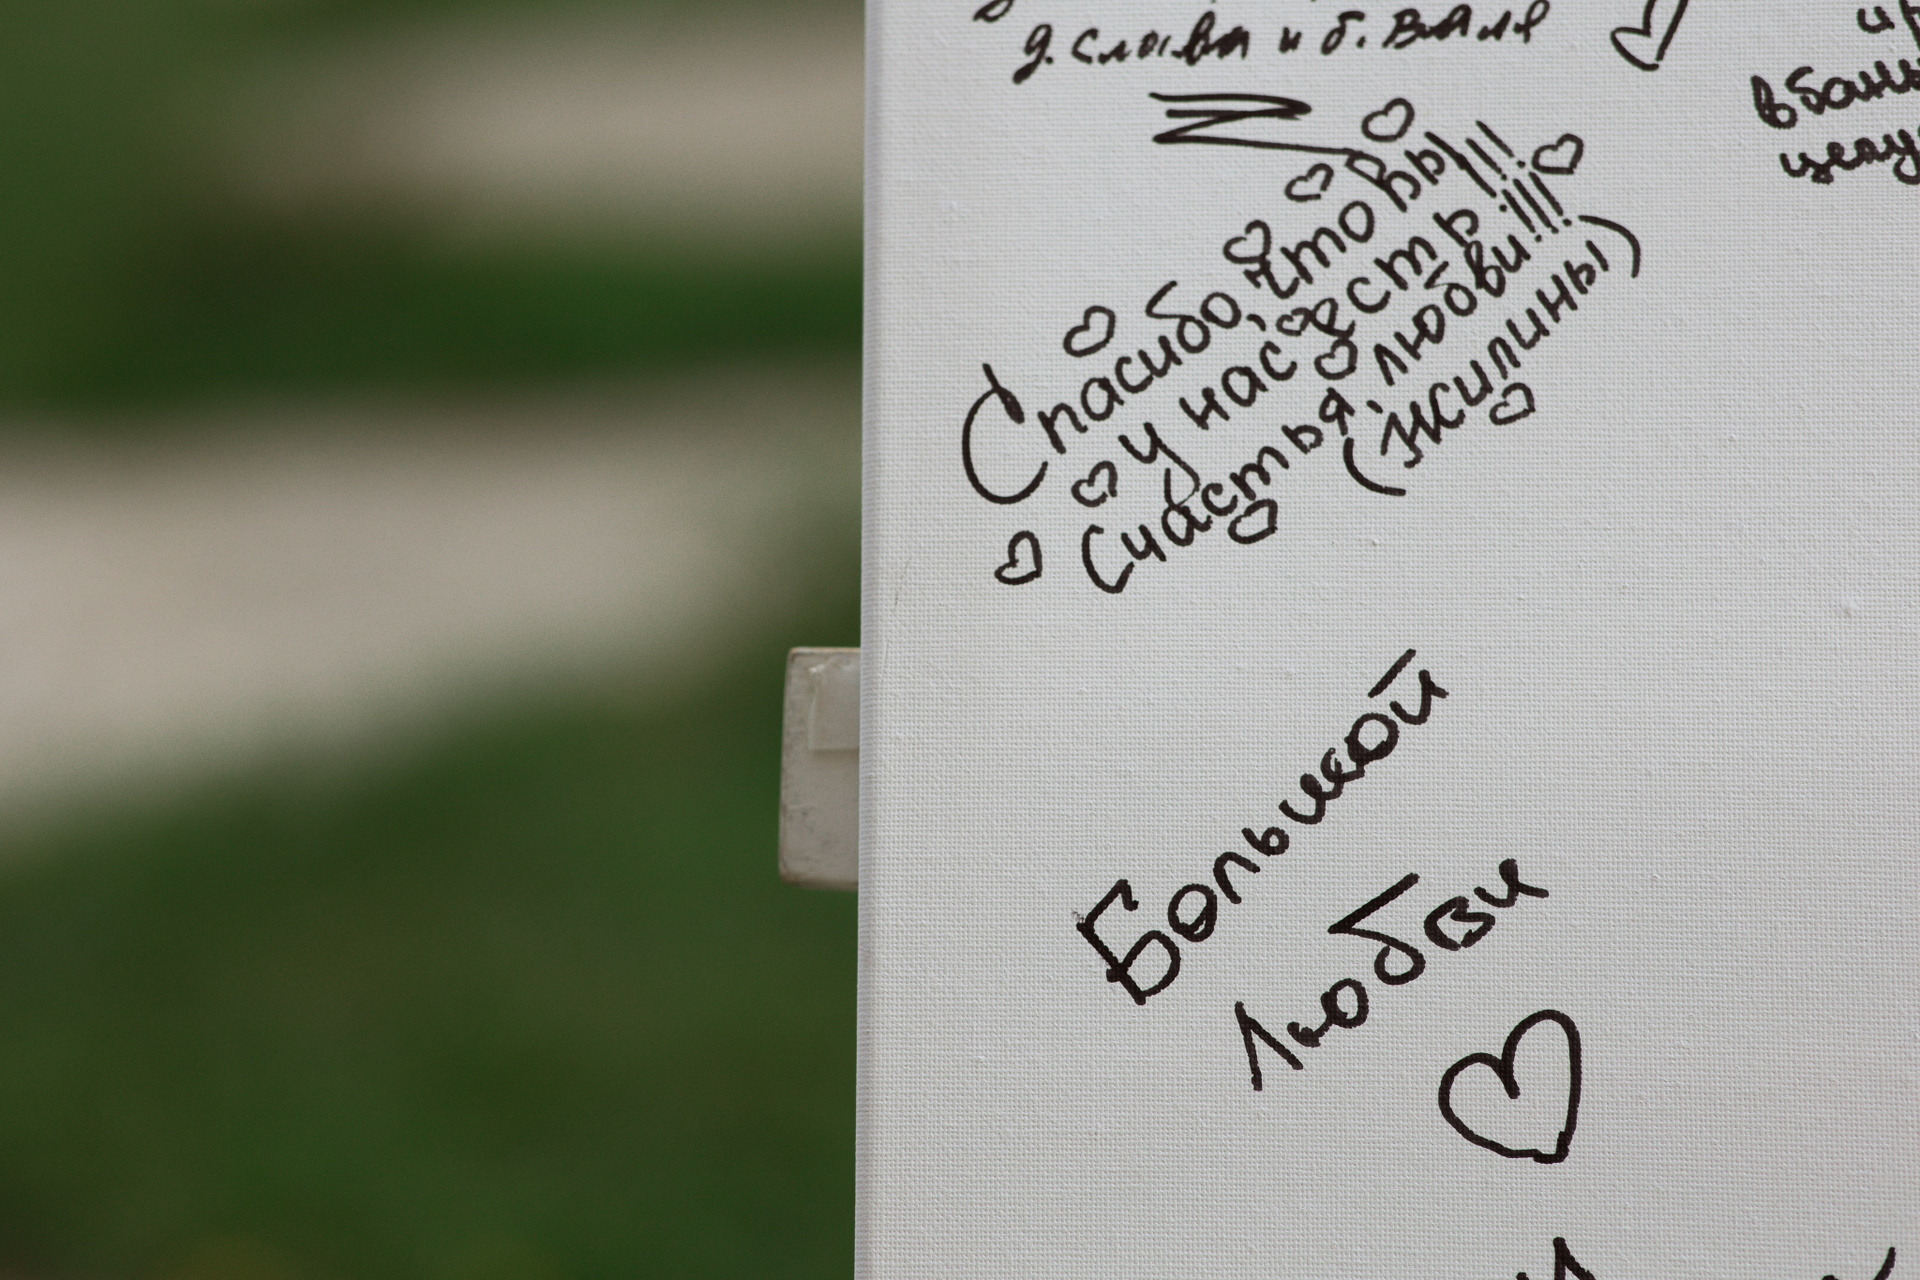 д. Слава и б. Валя
Спасибо, что вы
у нас есть!!!
Счастья, любви!!!!
(Жилины)
Большой
Любви
в бань
целу